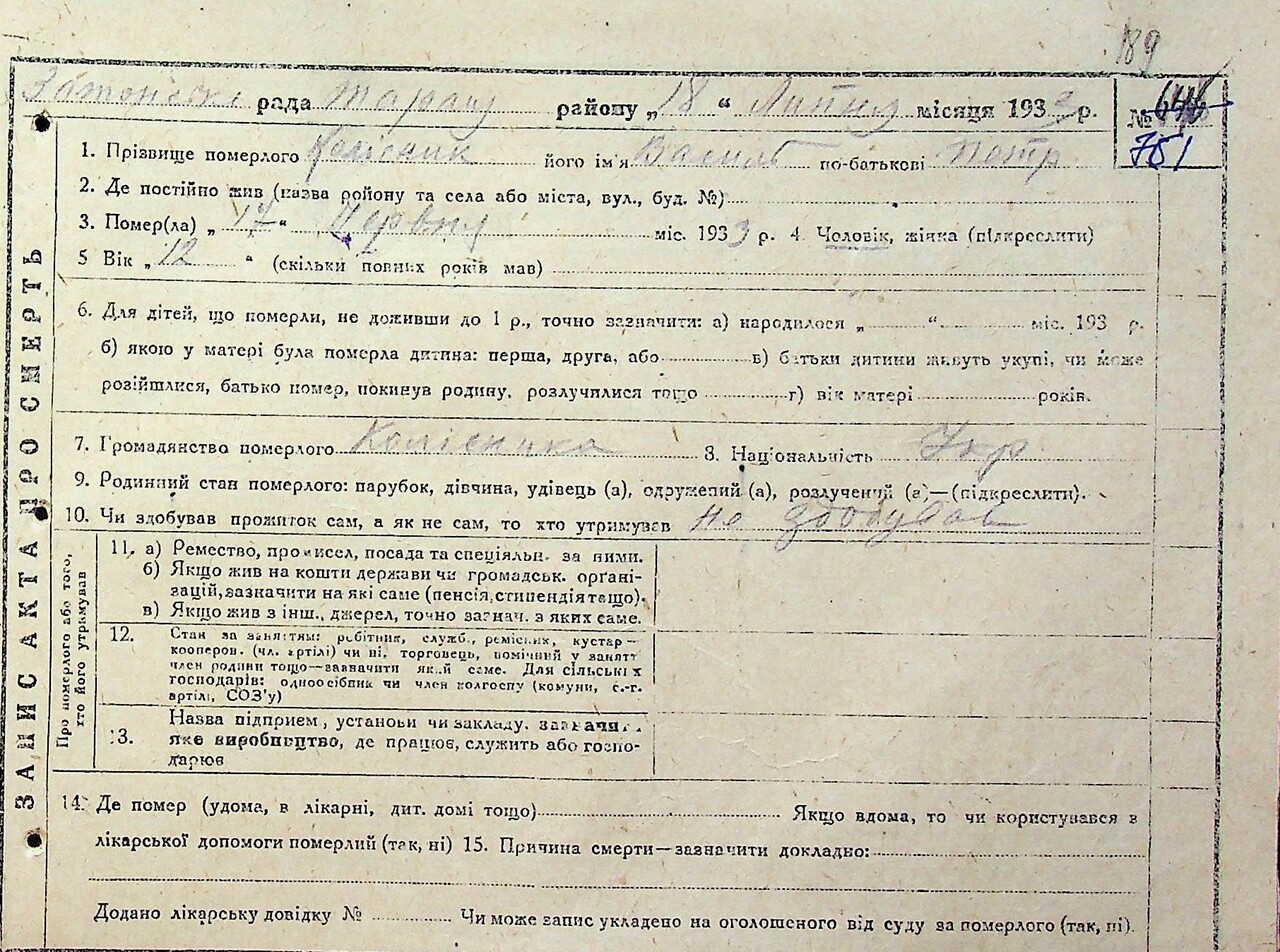 189
рада Таращ району „18“ Липня місяця 1933 р.
№ 646
751
1. Прізвище померлого Колісник його ім'я Василь по-батькові Петр
2. Де постійно жив (назва ройону та села або міста, вул., буд. №)
3. Помер(ла) „17“ Червня міс. 1933 р. 4. Чоловік, жінка (підкреслити)
5 Вік „12“ (скільки повних років мав)
6. Для дітей, що померли, не доживши до 1 р., точно зазначити: а) народилося „ “ міс. 193 р.
б) якою у матері була померла дитина: перша, друга, або в) батьки дитини живуть укупі, чи може
розійшлися, батько помер, покинув родину, розлучилися тощо г) вік матері років.
7. Громадянство померлого Колісника 8. Національність Укр
9. Родинний стан померлого: парубок, дівчина, удівець (а), одружений (а), розлучений (а)—(підкреслити).
10. Чи здобував прожиток сам, а як не сам, то хто утримував не здобував
ЗАПИС АКТА ПРО СМЕРТЬ
Про померлого або того, хто його утримував
11. а) Ремество, промисел, посада та спеціяльн. за ними.
б) Якщо жив на кошти держави чи громадськ. орґані-
зацій, зазначити на які саме (пенсія, стипендія тащо).
в) Якщо жив з інш., джерел, точно зазнач. з яких саме.
12. Стан за заняттям: робітник, служб., реміснк, кустар—
кооперов. (чл. артілі) чи ні, торговець, помічний у занятт
член родини тощо—зазначити який саме. Для сільських
господарів: одноосібник чи член колгоспу (комуни, с.-г.
артілі, СОЗ'у)
Назва підприєм., установи чи закладу, зазначи.
13. яке виробництво, де працює, служить або госпо-
дарює
14. Де помер (удома, в лікарні, дит. домі тощо) Якщо вдома, то чи користувався з
лікарської допомоги померлий (так, ні) 15. Причина смерти—зазначити докладно:
Додано лікарську довідку № Чи може запис укладено на оголошеного від суду за померлого (так, ні).